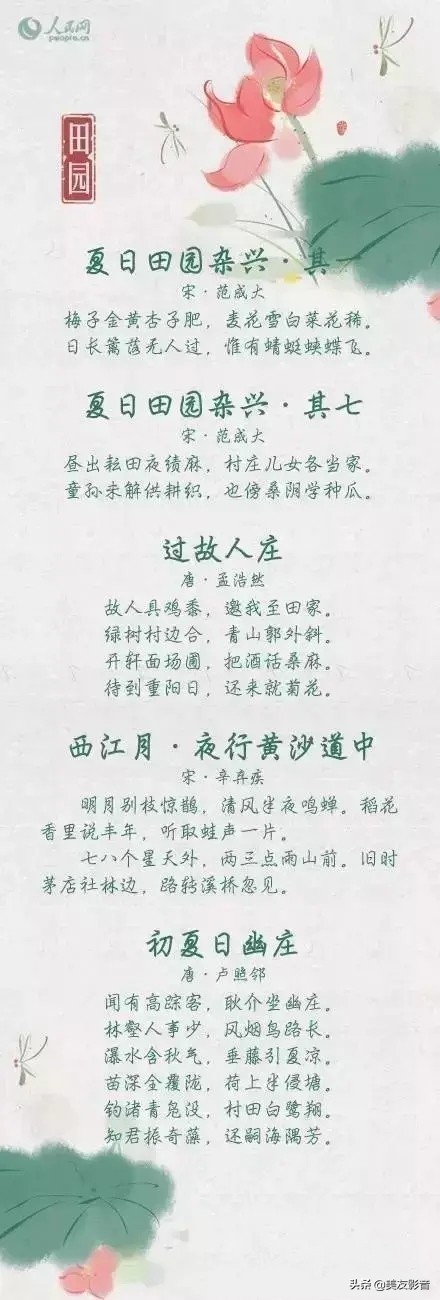 人民网
people.cn
田园
夏日田园杂兴·其一
宋·范成大
梅子金黄杏子肥，麦花雪白菜花稀。
日长篱落无人过，惟有蜻蜓蛱蝶飞。
夏日田园杂兴·其七
宋·范成大
昼出耘田夜绩麻，村庄儿女各当家。
童孙未解供耕织，也傍桑阴学种瓜。
过故人庄
唐·孟浩然
故人具鸡黍，邀我至田家。
绿树村边合，青山郭外斜。
开轩面场圃，把酒话桑麻。
待到重阳日，还来就菊花。
西江月·夜行黄沙道中
宋·辛弃疾
明月别枝惊鹊，清风半夜鸣蝉。稻花
香里说丰年，听取蛙声一片。
七八个星天外，两三点雨山前。旧时
茅店社林边，路转溪桥忽见。
初夏日幽庄
唐·卢照邻
闻有高踪客，耿介坐幽庄。
林壑人事少，风烟鸟路长。
瀑水含秋气，垂藤引夏凉。
苗深全覆陇，荷上半侵塘。
钓渚青凫没，村田白鹭翔。
知君振奇藻，还嗣海隅芳。
头条@美友影音